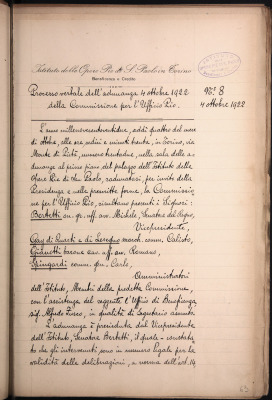 Istituto delle Opere Pie di S. Paolo in Torino
Beneficenza e Credito
Processo verbale dell'adunanza 4 ottobre 1922
della Commissione per l'Ufficio Pio.
N.° 8
4 ottobre 1922
L'anno millenovecentoventidue, addì quattro del mese
di ottobre, alle ore sedici e minuti trenta, in Torino, via
Monte di Pietà, numero trentadue, nella sala delle a-
dunanze al primo piano del palazzo dell'Istituto delle
Opere Pie di San Paolo, radunatasi per invito della
Presidenza e nelle prescritte forme, la Commissio-
ne per l'Ufficio Pio, risultano presenti i Signori:
Bertetti av. gr. uff. Michele, Senatore del Regno,
Vicepresidente,
comm. Calisto,
Gianotti barone cav. uff. avv. Romano,
comm. Carlo,
Amministratori
dell'Istituto, Membri della predetta Commissione,
con l'assistenza del reggente l'Ufficio di Beneficenza
sig. Alfredo in qualità di Segretario assunto.
L'adunanza è presieduta dal Vicepresidente
dell'Istituto, Senatore Bertetti, il quale - constata-
to che gli intervenuti sono in numero legale per la
validità delle deliberazioni, a norma dell'art. 14